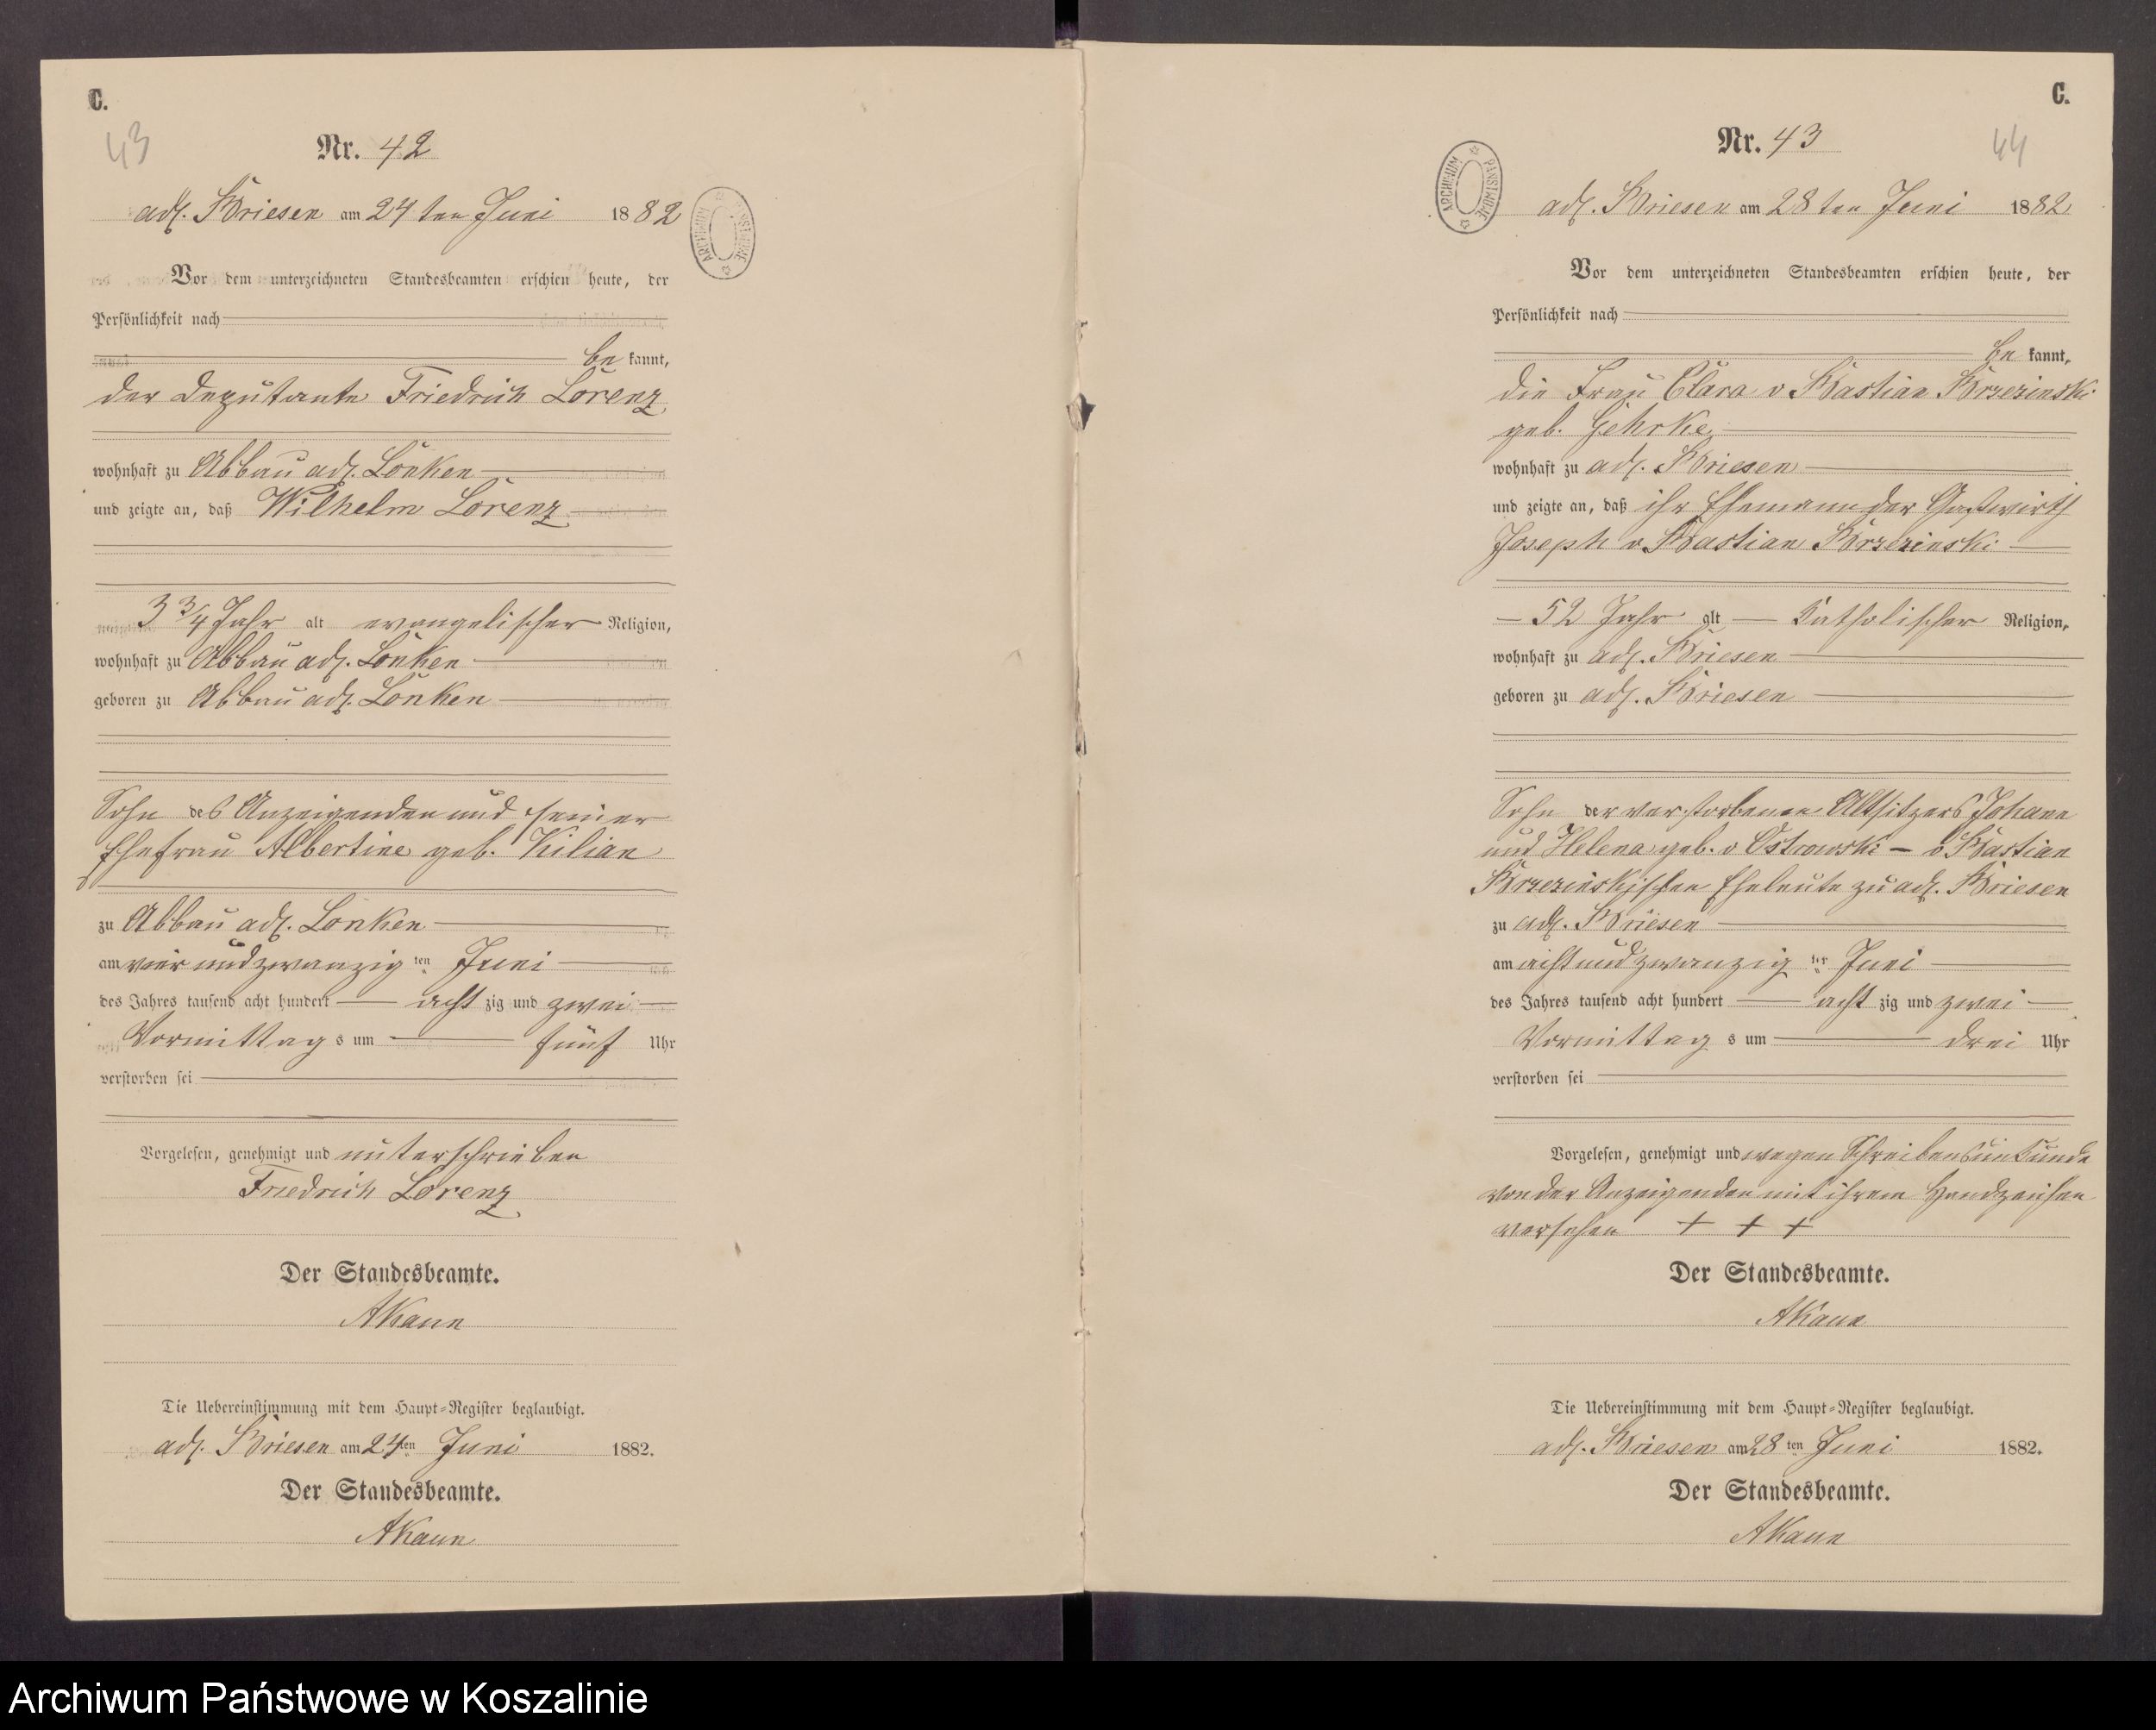 C.
43
Nr. 42
adl. Briesen am 24ten Juni 1882
Vor dem unterzeichneten Standesbeamten erschien heute, der
Persönlichkeit nach
be kannt,
der Deputante Friedrich Lorenz
wohnhaft zu Abbau adl. Lonken
und zeigte an, daß Wilhelm Lorenz
3 3/4 Jahr alt evangelischer Religion,
wohnhaft zu Abbau adl. Lonken
geboren zu Abbau adl. Lonken
Sohn des Anzeigenden und seiner
Ehefrau Albertine geb. Kilian
zu Abbau adl. Lonken
am vier und zwanzig ten Juni
des Jahres tausend acht hundert acht zig und zwei
Vormittag s um fünf Uhr
verstorben sei
Vorgelesen, genehmigt und unterschrieben
Friedrich Lorenz
Der Standesbeamte.
AKaun
Die Uebereinstimmung mit dem Haupt-Register beglaubigt.
adl. Briesen am 24ten Juni 1882.
Der Standesbeamte.
AKaun
ARCHIWUM PAŃSTWOWE
C.
44
Nr. 43
adl. Briesen am 28ten Juni 1882
Vor dem unterzeichneten Standesbeamten erschien heute, der
Persönlichkeit nach
be kannt,
die Frau Clara v Bastian Brzezinski
geb. Gehrke
wohnhaft zu adl. Briesen
und zeigte an, daß ihr Ehemann der Gastwirth
Joseph v Bastian Brzezinski
52 Jahr alt Katholischer Religion,
wohnhaft zu adl. Briesen
geboren zu adl. Briesen
Sohn der verstorbenen Altsitzers Johann
und Helena geb. v Ostrowski - v Bastian
Brzezinskischen Eheleute zu adl. Briesen
zu adl. Briesen
am acht und zwanzig ten Juni
des Jahres tausend acht hundert acht zig und zwei
Vormittag s um drei Uhr
verstorben sei
Vorgelesen, genehmigt und wegen Schreibensunkunde
von der Anzeigenden mit ihrem Handzeichen
versehen + + +
Der Standesbeamte.
AKaun
Die Uebereinstimmung mit dem Haupt-Register beglaubigt.
adl. Briesen am 28 ten Juni 1882.
Der Standesbeamte.
AKaun
ARCHIWUM PAŃSTWOWE
Archiwum Państwowe w Koszalinie